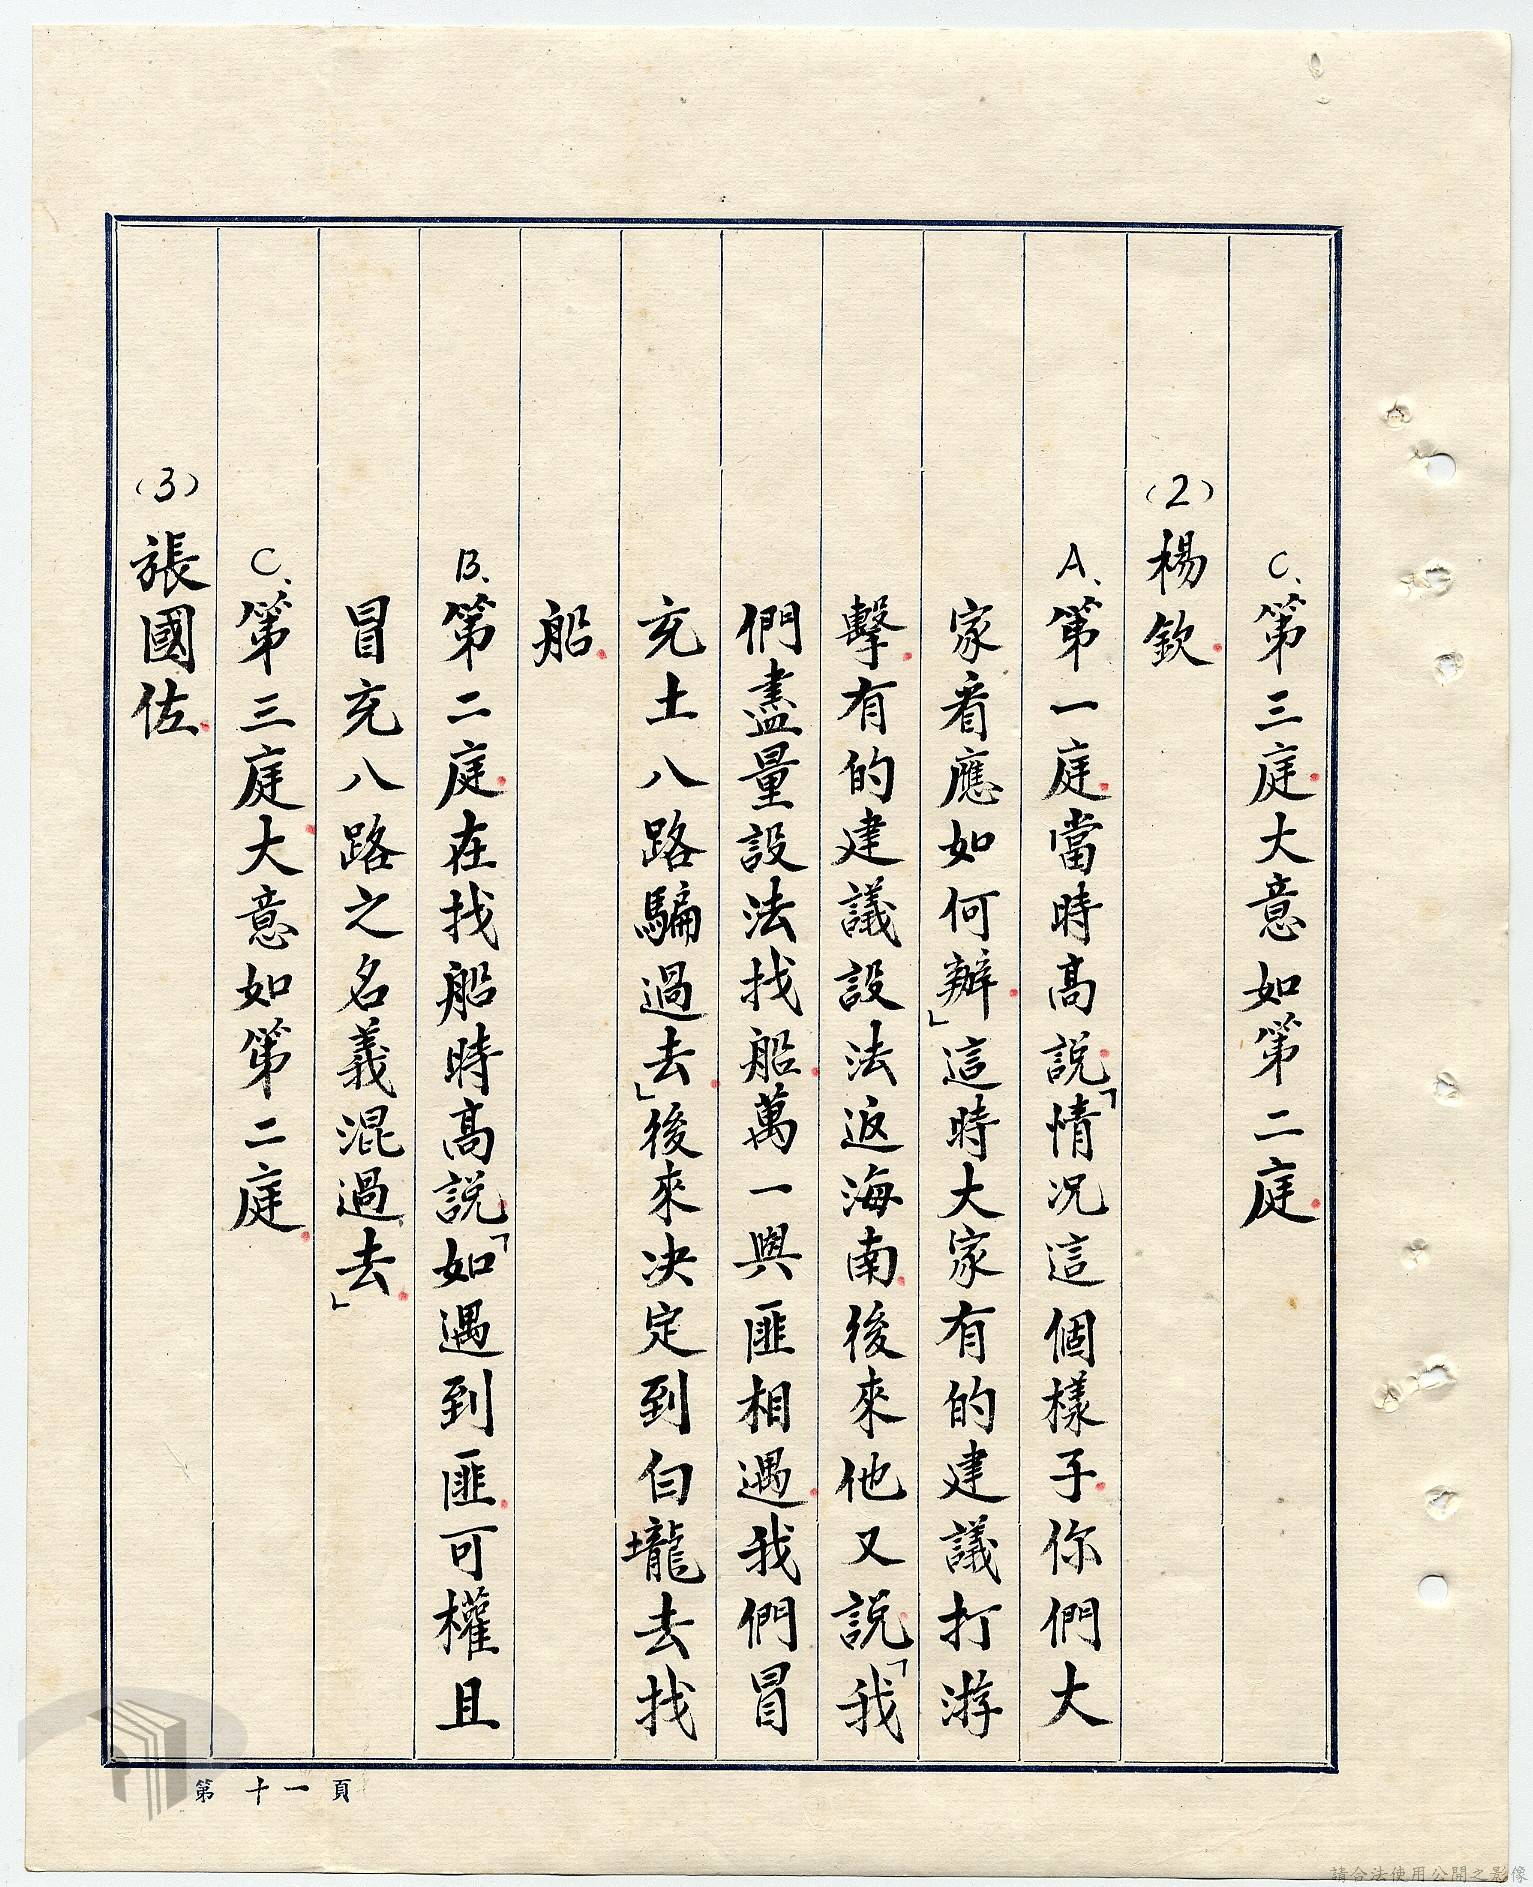 C、第三庭大意如第二庭
(2)楊欽
A、第一庭當時高說「情况這個樣子你們大
家看應如何辦」這時大家有的建議打游
擊有的建議設法返海南後來他又說「我
們盡量設法找船萬一與匪相遇我們冒
充土八路騙過去」後來决定到白壠去找
船
B、第二庭在找船時高說「如遇到匪可權且
冒充八路之名義混過去」
C、第三庭大意如第二庭
(3)張國佐
第十一頁
請合法使用公開之影像